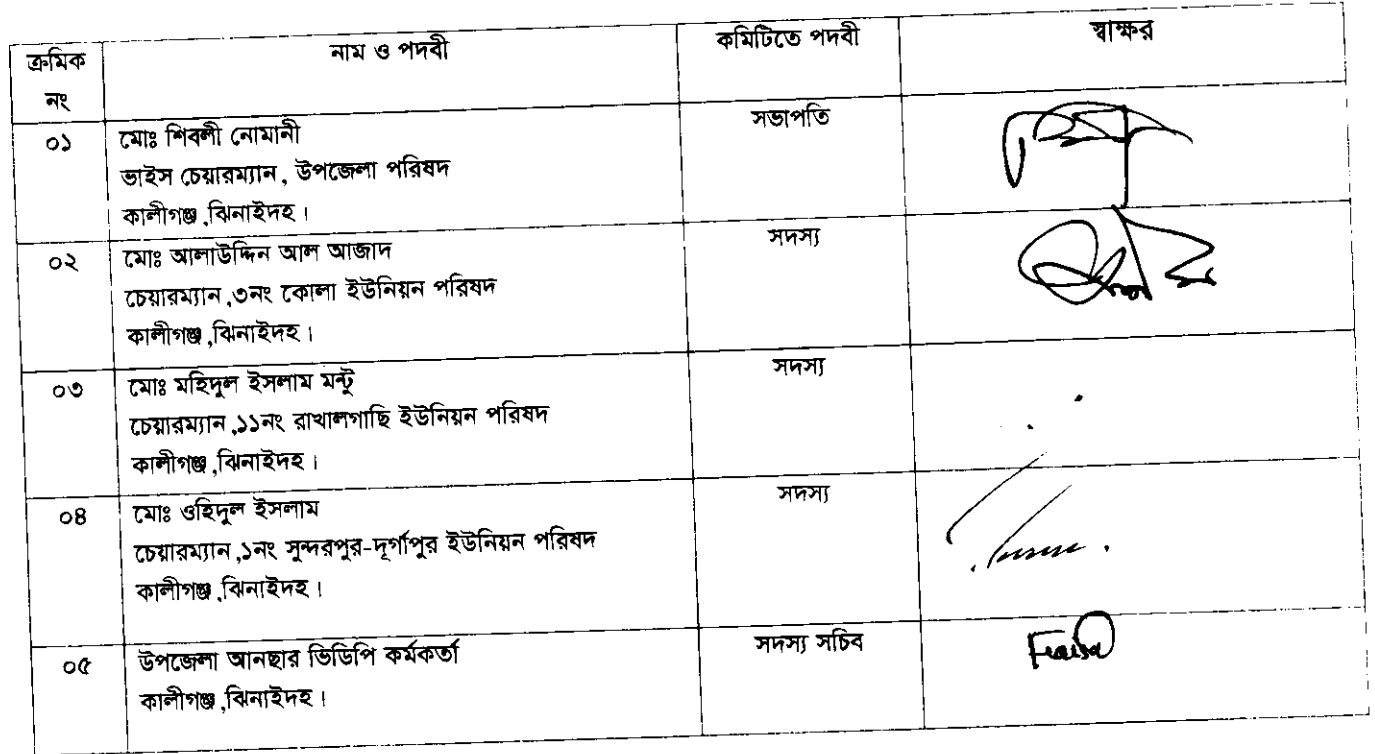 ক্রমিক নং	নাম ও পদবী	কমিটিতে পদবী	স্বাক্ষর
০১	মোঃ শিবলী নোমানী	সভাপতি
ভাইস চেয়ারম্যান, উপজেলা পরিষদ
কালীগঞ্জ,ঝিনাইদহ।
০২	মোঃ আলাউদ্দিন আল আজাদ	সদস্য
চেয়ারম্যান,৩নং কোলা ইউনিয়ন পরিষদ
কালীগঞ্জ,ঝিনাইদহ।
০৩	মোঃ মহিদুল ইসলাম মন্টু	সদস্য
চেয়ারম্যান,১১নং রাখালগাছি ইউনিয়ন পরিষদ
কালীগঞ্জ,ঝিনাইদহ।
০৪	মোঃ ওহিদুল ইসলাম	সদস্য
চেয়ারম্যান,১নং সুন্দরপুর-দূর্গাপুর ইউনিয়ন পরিষদ
কালীগঞ্জ,ঝিনাইদহ।
০৫	উপজেলা আনছার ভিডিপি কর্মকর্তা	সদস্য সচিব
কালীগঞ্জ,ঝিনাইদহ।